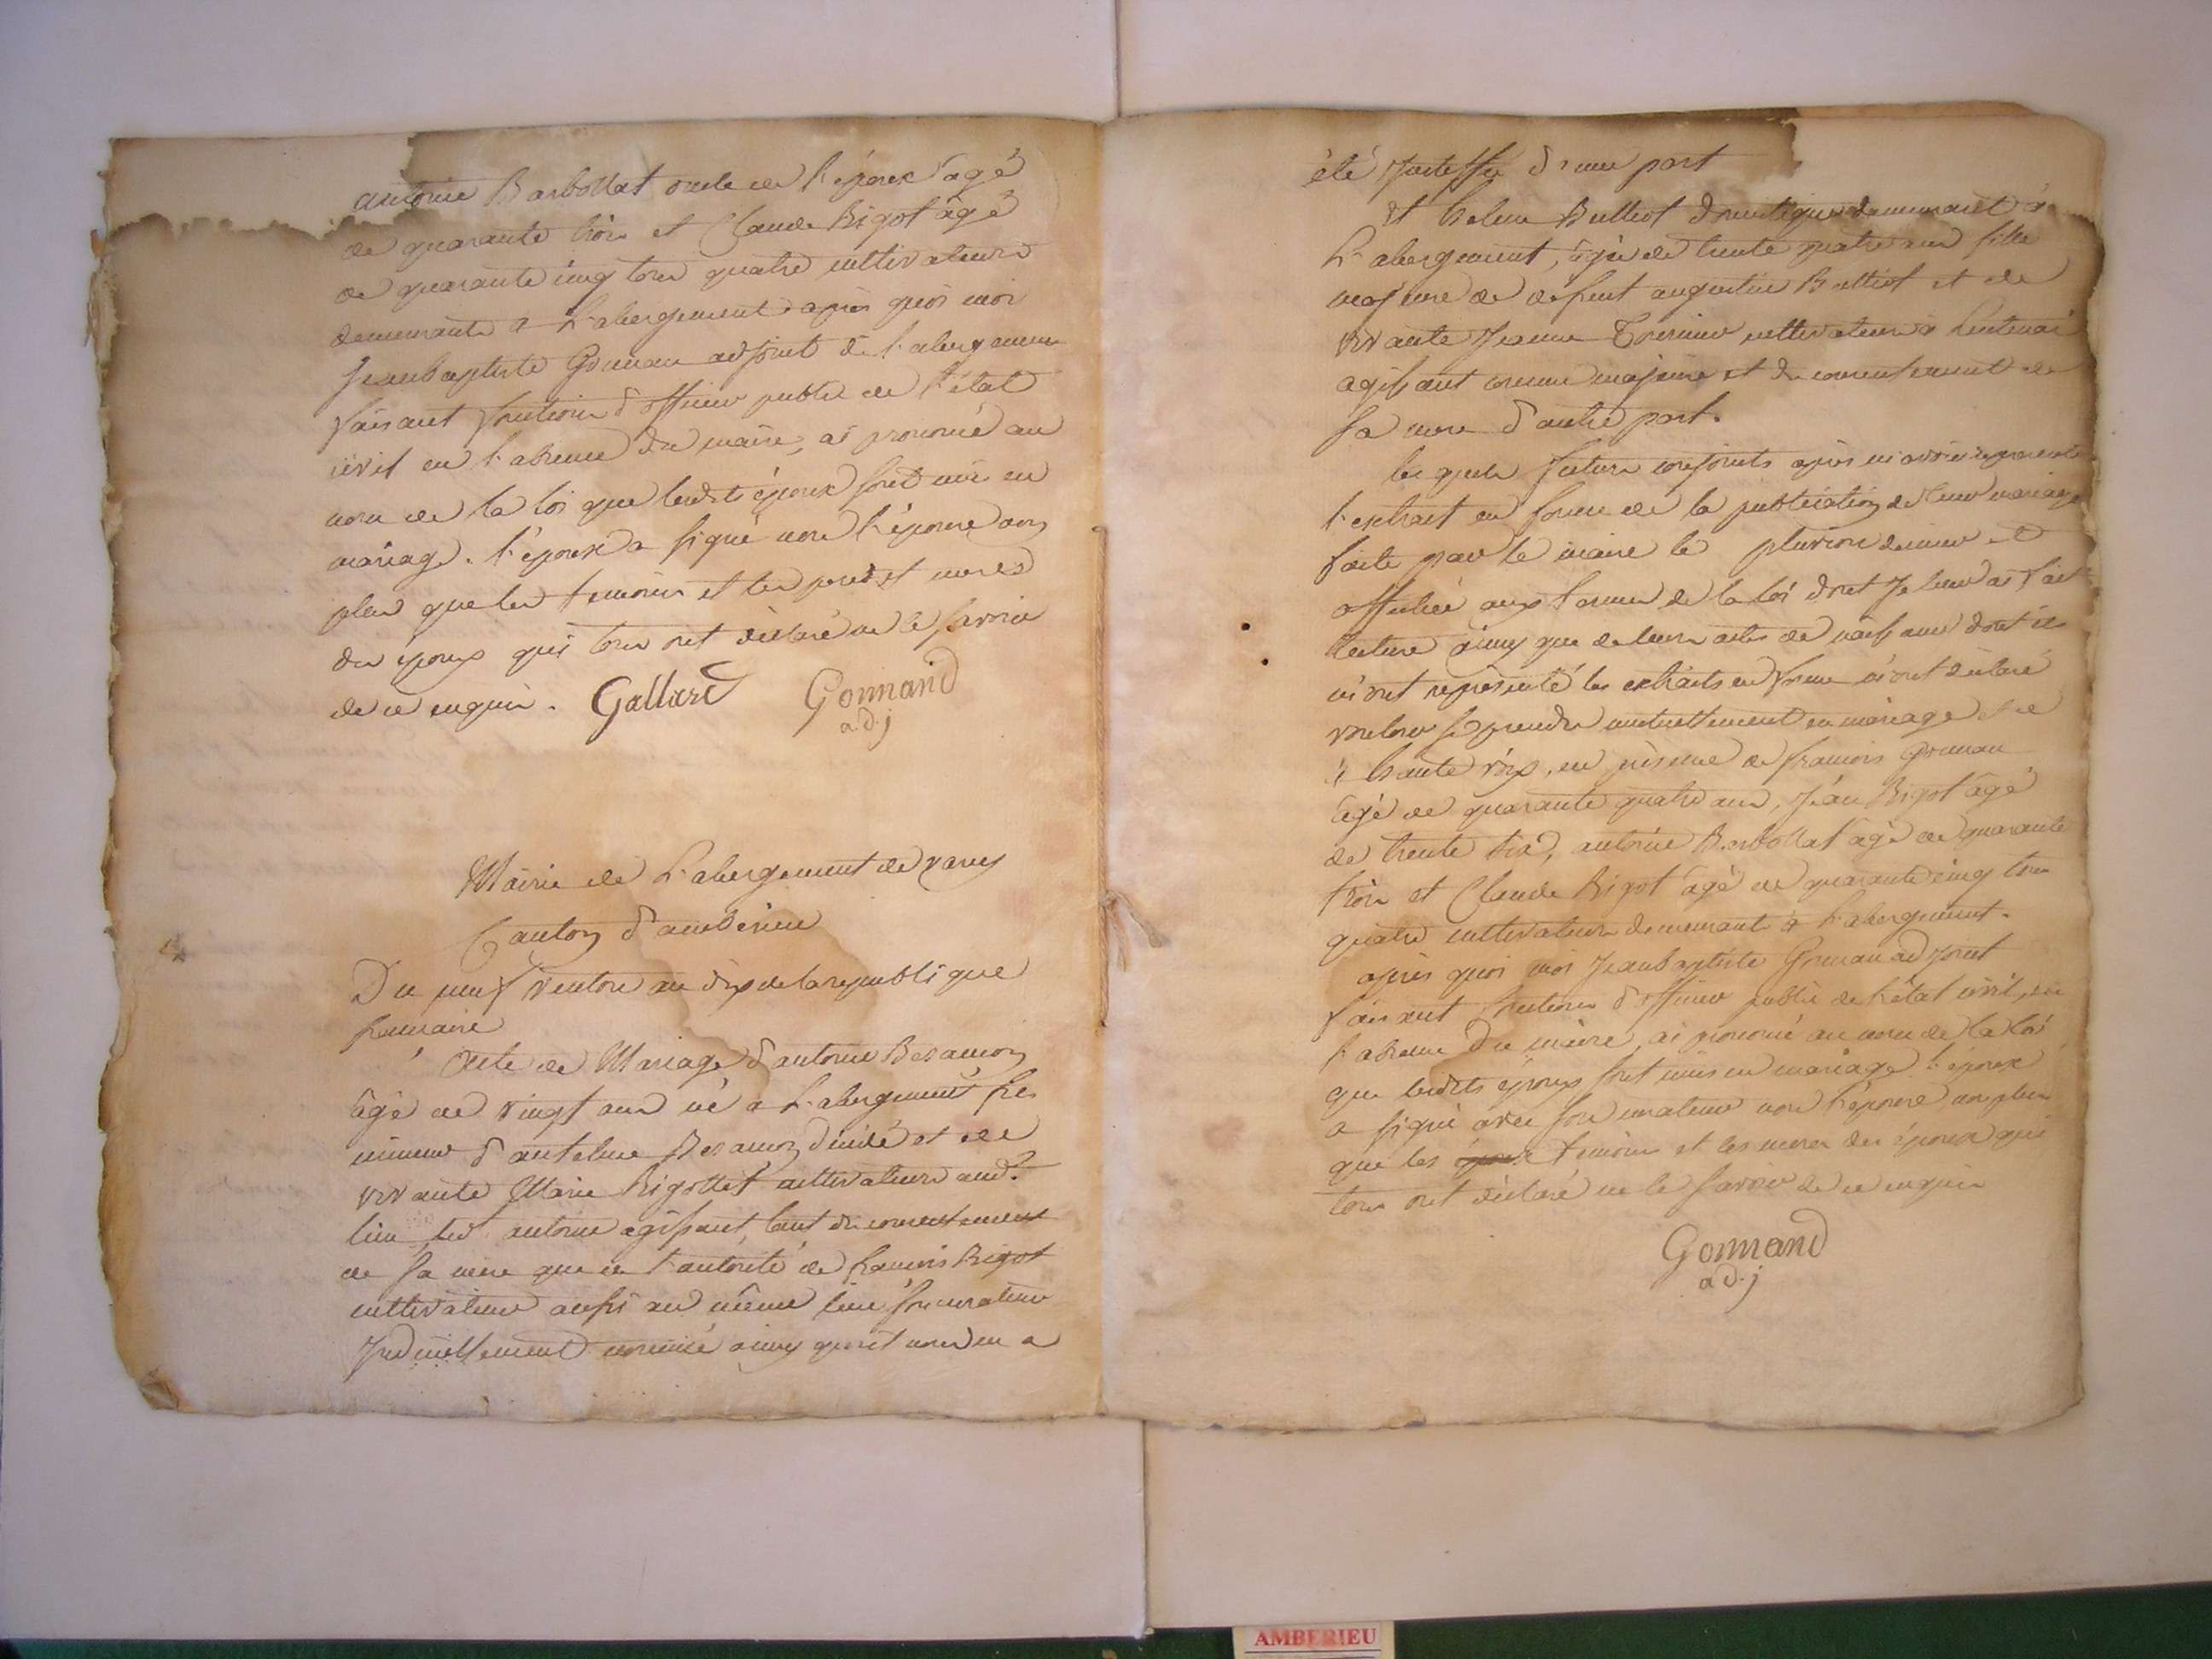 antoine Barbollat oncle de l'épouse âgé
de quarante trois et Claude Bigot âgé
de quarante cinq tous quatre cultivateurs
demeurants a L'abergement après quoi moi
Jeanbaptiste Gonnan adjoint de L'abergement
faisant fonctions d'officier public de l'état
civil en l'absence du maire, ai prononcé au
nom de la loi que lesdits époux sont unis en
mariage. l'époux a signé non l'épouse non
plus que les temoins et les peres et meres
des époux qui tous ont déclaré ne le savoir
de ce enquis. Gallard Gonnand
adj
Mairie de L'abergement de varey
Canton d'ambérieu
Du neuf ventose an dix de la republique
francaise
Acte de Mariage d'antoine Besançon
âgé de vingt ans né a L'abergement fils
mineur d'antelme Besançon décédé et de
vivante Marie Bigottet cultivateurs aud.
lieu led. antoine agissant tant du consentement
de sa mère que de l'autorité de francois Bigot
cultivateur aussi au même lieu son curateur
Judiciellement nommé ainsy qu'il nous en a
été Justiffié d'une part
Et helene Bulliot domestique demeurant à
L'abergement, âgée de trente quatre ans fille
majeure de defunt augustin Bulliot et de
vivante Jeanne cultivateurs à
agissant comme majeure et du consentement de
sa mere d'autre part.
lesquels futurs conjoints après m'avoir représenté
l'extrait en forme de la publication de leur mariage
faite par le maire le pluviose dernier et
affichée aux formes de la loi dont Je leur ai fait
lecture ainsy que de leurs actes de naissance dont ils
m'ont représenté les extraits en forme m'ont déclaré
vouloir se prendre mutuellement en mariage et ce
à haute voix, en présence de francois Gonnan
âgé de quarante quatre ans, Jean Bigot âgé
de trente six, antoine Barbollat âgé de quarante
trois et Claude Bigot âgé de quarante cinq tous
quatre cultivateurs demeurant à L'abergement.
après quoi moi Jeanbaptiste Gonnan adjoint
faisant fonctions d'officier public de l'état civil, en
l'absence du maire, ai prononcé au nom de la loi
que lesdits époux sont unis en mariage l'époux
a signé avec son curateur non l'épouse non plus
que les époux temoins et les meres des époux qui
tous ont déclaré ne le savoir de ce enquis
Gonnand
adj
AMBERIEU